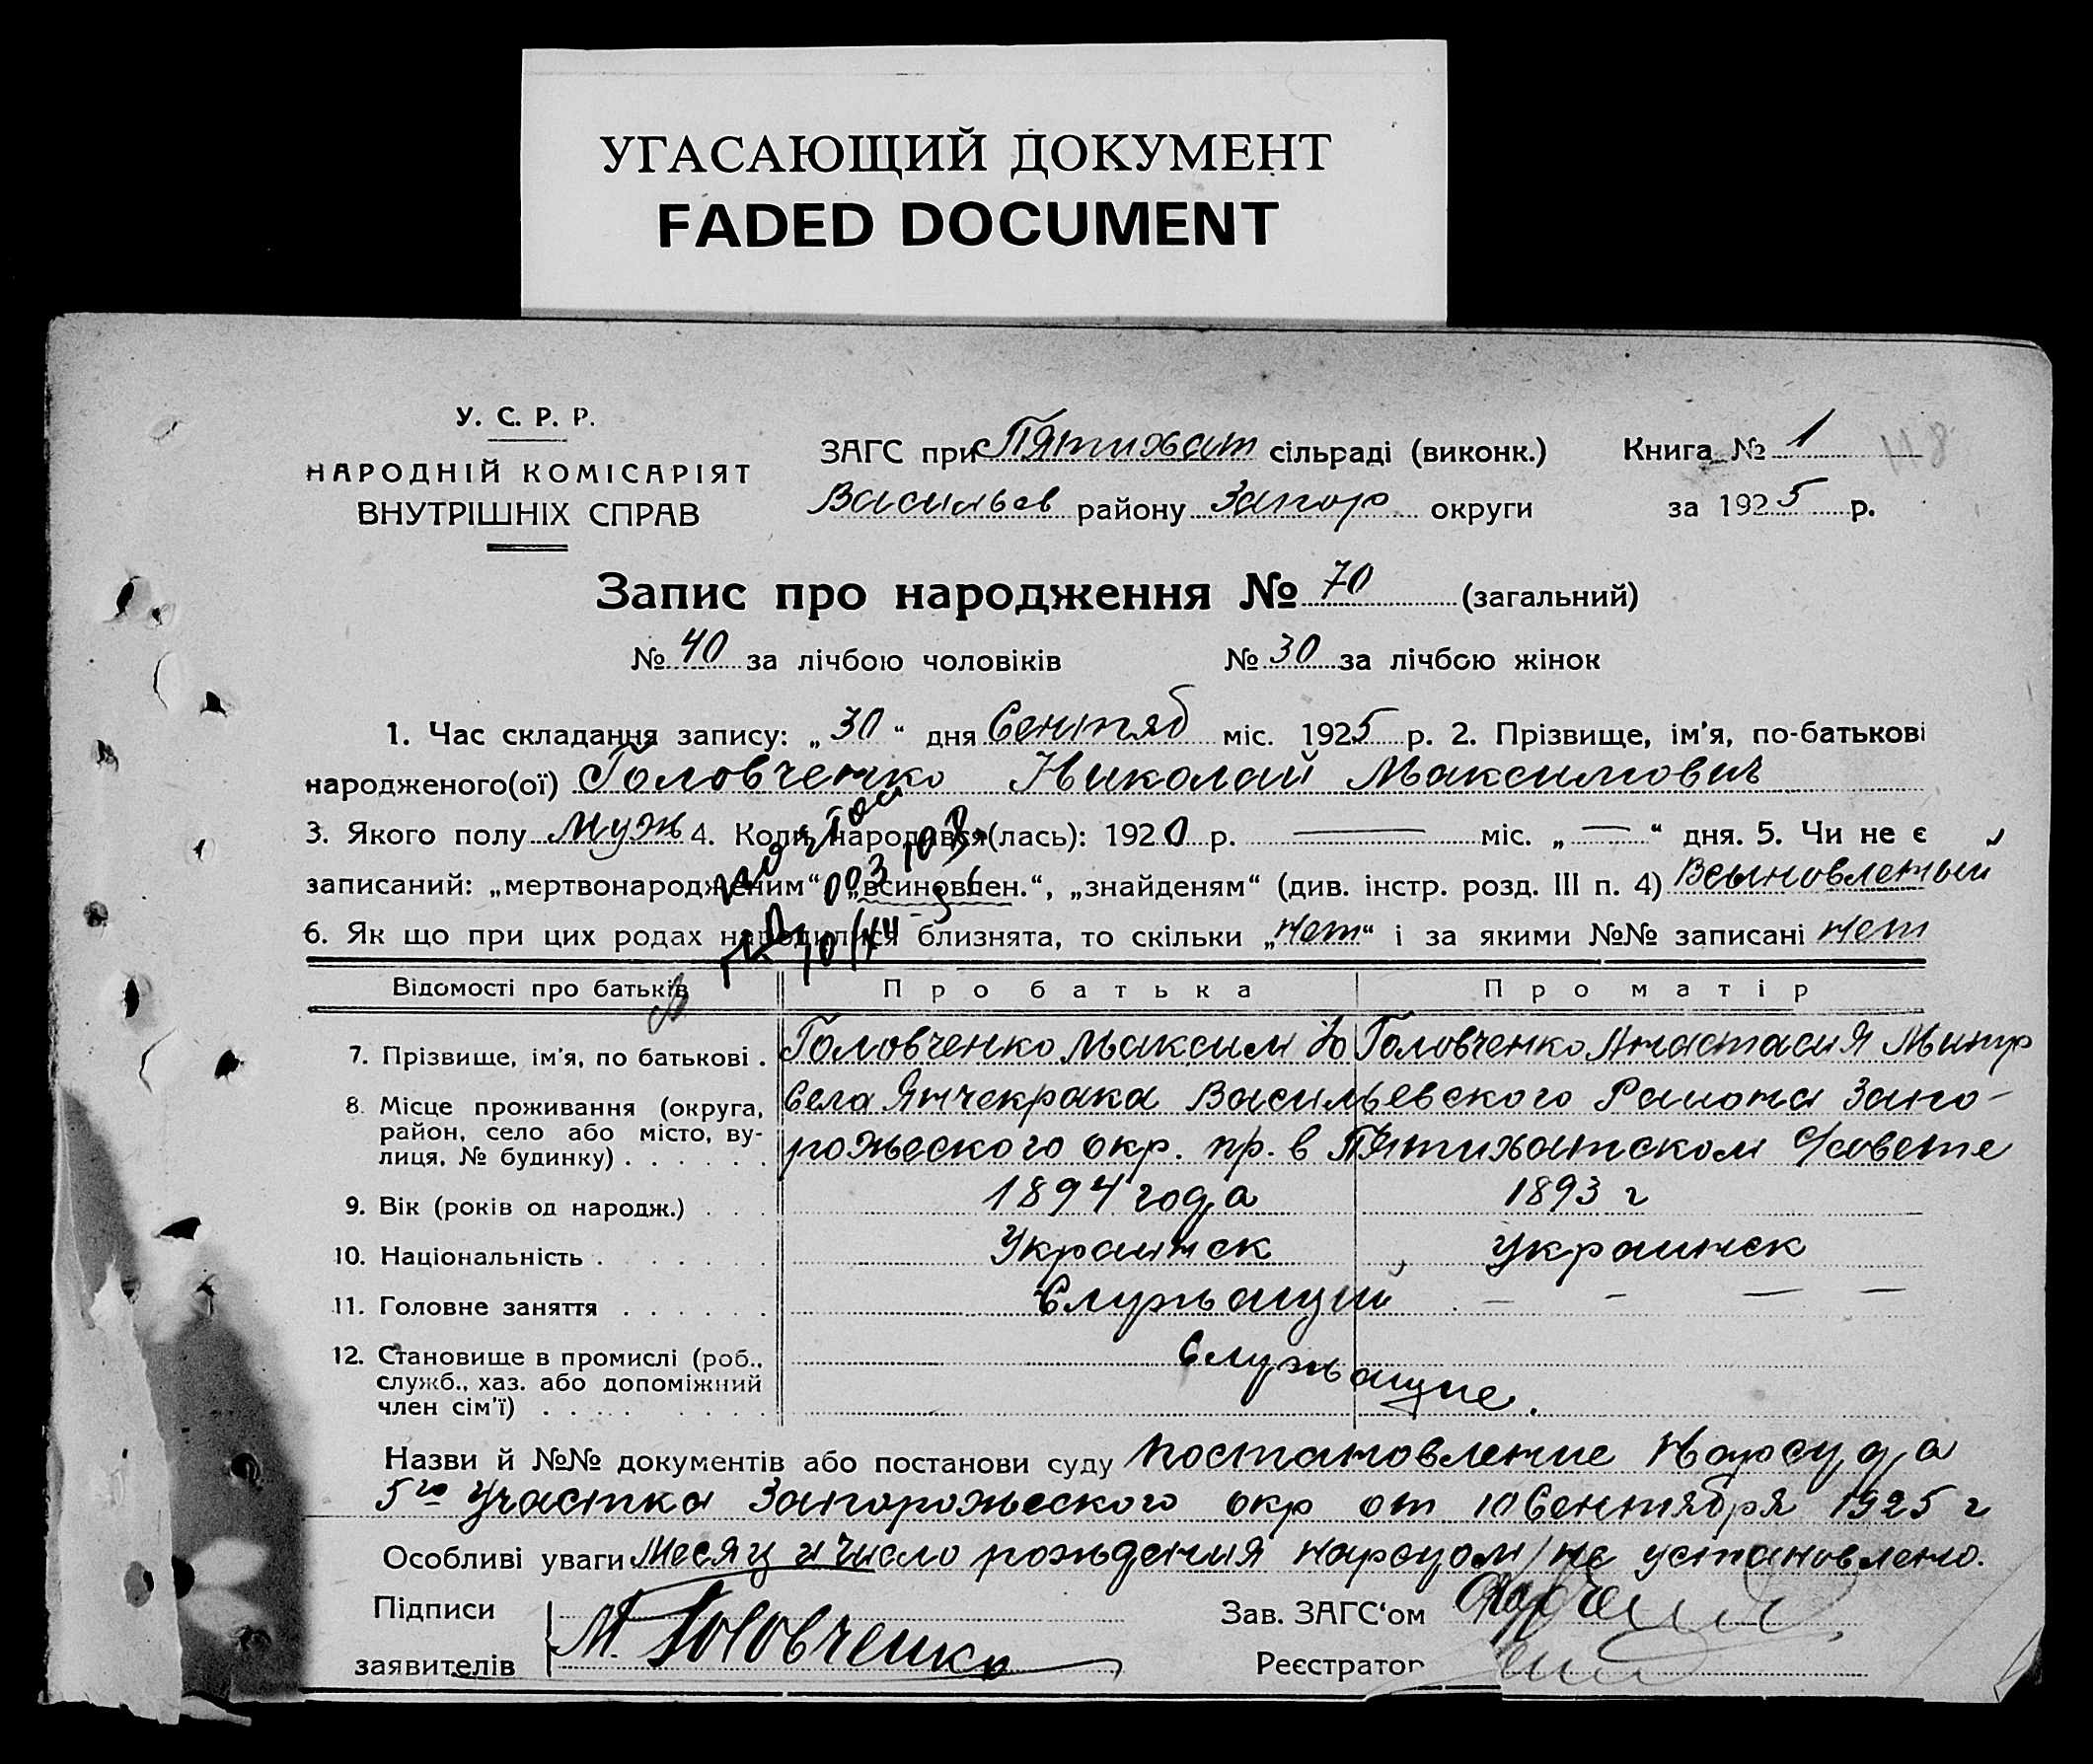 УГАСАЮЩИЙ ДОКУМЕНТ
FADED DOCUMENT
У. С. Р. Р.
НАРОДНІЙ КОМІСАРІЯТ
ВНУТРІШНІХ СПРАВ
ЗАГС при Пятихат сільраді (виконк.)
Васильев району Запор округи
Книга № 1
118
за 1925 р.
Запис про народження № 70 (загальний)
№ 40 за лічбою чоловіків № 30 за лічбою жінок
1. Час складання запису: „30“ дня Сентяб міс. 1925 р. 2. Прізвище, ім'я, по-батькові
народженого(ої) Головченко Николай Максимович
3. Якого полу муж 4. Коли народився(лась): 1920 р. — міс. „—“ дня. 5. Чи не є
записаний: „мертвонародженим“ „всиновлен.“, „знайденям“ (див. інстр. розд. III п. 4) Всыновленный
6. Як що при цих родах народилися близнята, то скільки „нет“ і за якими №№ записані нет
Відомості про батьків Про батька Про матір
7. Прізвище, ім'я, по батькові . Головченко Максим Головченко Анастасия
8. Місце проживання (округа, район, село або місто, ву-
лиця, № будинку) . . . . . .
Села Янчекрака Васильевского Района Запо-
рожьеского окр. пр. в Пятихатском С/совете
9. Вік (років од народж.) . . . 1894 года 1893 г
10. Національність . . . . . . Украинск украинск
11. Головне заняття . . . . . Служащий — - — —
12. Становище в промислі (роб.,
служб., хаз. або допоміжний
член сім'ї) . . . . . . . .
Служащие.
Назви й №№ документів або постанови суду Постановление Нарсуда
5го участка Запорожьеского окр от 10 Сентября 1925 г
Особливі уваги Месяц и число рождения нарсудом не установлено.
Підписи
заявителів
М. Головченко
Зав. ЗАГС'ом
Реєстратор